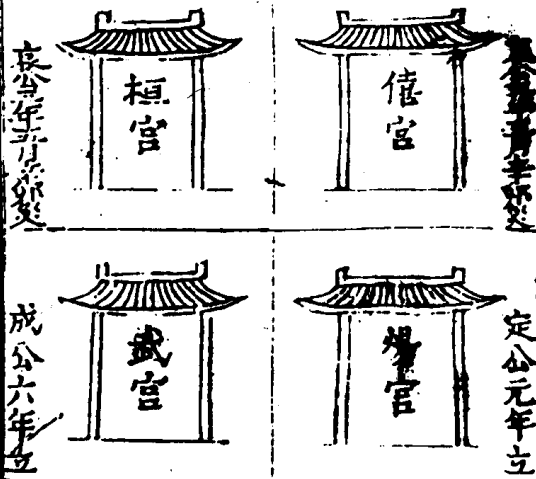 月辛卯災
僖宮
桓宮
哀公三年五月辛卯災
定公元年立
煬宮
武宮
成公六年立